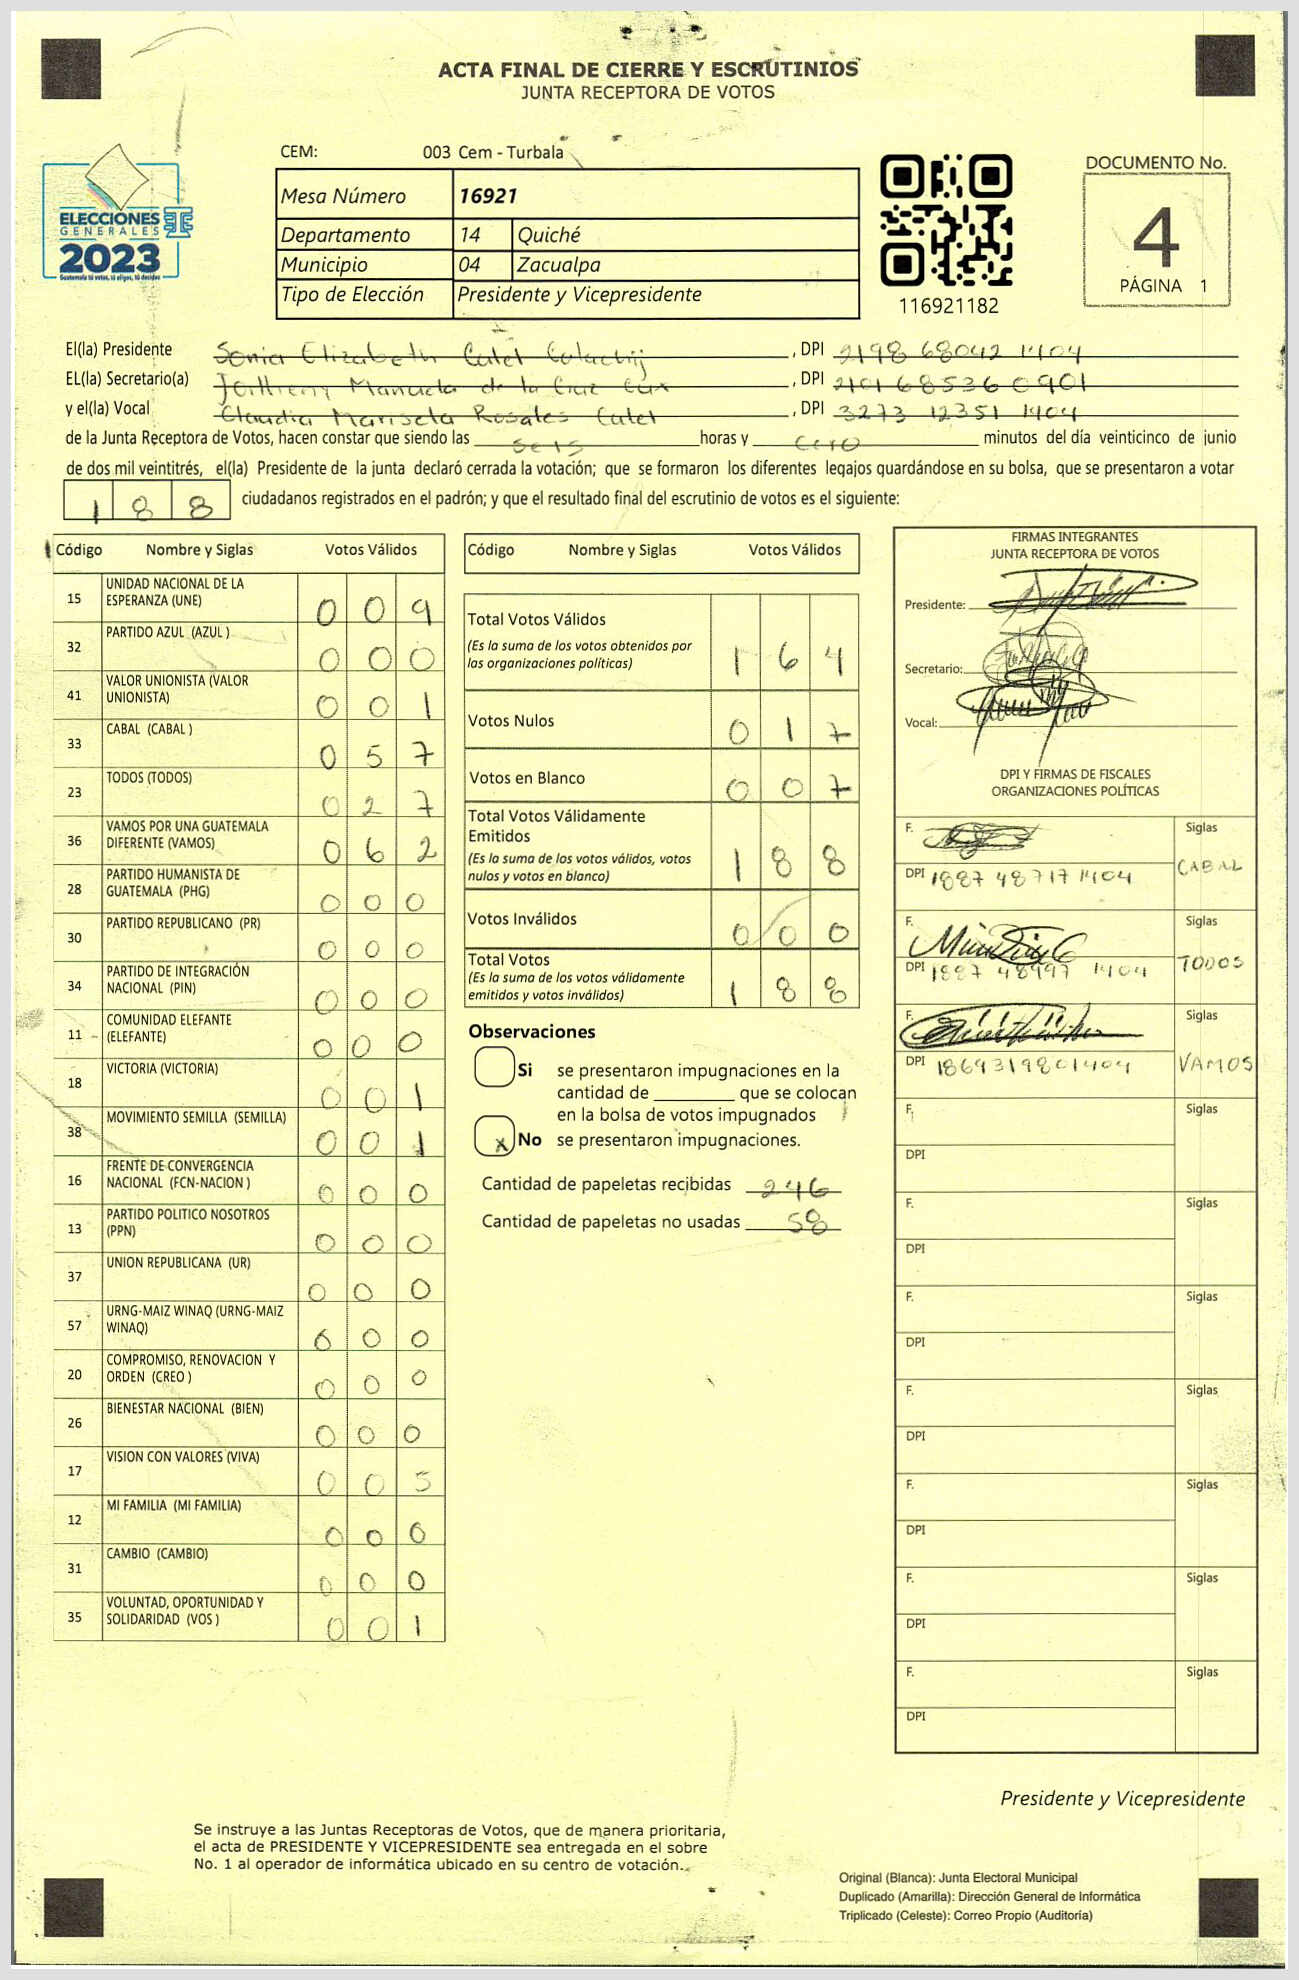 ACTA FINAL DE CIERRE Y ESCRUTINIOS
JUNTA RECEPTORA DE VOTOS
CEM: 003 Cem - Turbala
ELECCIONES
GENERALES
2023
Guatemala tú votas, tú eliges, tú decides
Mesa Número 16921
Departamento 14 Quiché
Municipio 04 Zacualpa
Tipo de Elección Presidente y Vicepresidente
116921182
DOCUMENTO No.
4
PÁGINA 1
El(la) Presidente Sonia Elizabeth Calel , DPI 2198 68042 1404
EL(la) Secretario(a) Manuela de la Cruz , DPI 2101 68536 0901
y el(la) Vocal Claudia Marisela Rosales Calel , DPI 3273 12351 1404
de la Junta Receptora de Votos, hacen constar que siendo las seis horas y cero minutos del día veinticinco de junio
de dos mil veintitrés, el(la) Presidente de la junta declaró cerrada la votación; que se formaron los diferentes legajos guardándose en su bolsa, que se presentaron a votar
188 ciudadanos registrados en el padrón; y que el resultado final del escrutinio de votos es el siguiente:
Código Nombre y Siglas Votos Válidos
15 UNIDAD NACIONAL DE LA ESPERANZA (UNE) 0 0 9
32 PARTIDO AZUL (AZUL ) 0 0 0
41 VALOR UNIONISTA (VALOR UNIONISTA) 0 0 1
33 CABAL (CABAL ) 0 5 7
23 TODOS (TODOS) 0 2 7
36 VAMOS POR UNA GUATEMALA DIFERENTE (VAMOS) 0 6 2
28 PARTIDO HUMANISTA DE GUATEMALA (PHG) 0 0 0
30 PARTIDO REPUBLICANO (PR) 0 0 0
34 PARTIDO DE INTEGRACIÓN NACIONAL (PIN) 0 0 0
11 COMUNIDAD ELEFANTE (ELEFANTE) 0 0 0
18 VICTORIA (VICTORIA) 0 0 1
38 MOVIMIENTO SEMILLA (SEMILLA) 0 0 1
16 FRENTE DE CONVERGENCIA NACIONAL (FCN-NACION ) 0 0 0
13 PARTIDO POLITICO NOSOTROS (PPN) 0 0 0
37 UNION REPUBLICANA (UR) 0 0 0
57 URNG-MAIZ WINAQ (URNG-MAIZ WINAQ) 0 0 0
20 COMPROMISO, RENOVACION Y ORDEN (CREO ) 0 0 0
26 BIENESTAR NACIONAL (BIEN) 0 0 0
17 VISION CON VALORES (VIVA) 0 0 5
12 MI FAMILIA (MI FAMILIA) 0 0 0
31 CAMBIO (CAMBIO) 0 0 0
35 VOLUNTAD, OPORTUNIDAD Y SOLIDARIDAD (VOS ) 0 0 1
Código Nombre y Siglas Votos Válidos
Total Votos Válidos 1 6 4
(Es la suma de los votos obtenidos por
las organizaciones políticas)
Votos Nulos 0 1 7
Votos en Blanco 0 0 7
Total Votos Válidamente
Emitidos 1 8 8
(Es la suma de los votos válidos, votos
nulos y votos en blanco)
Votos Inválidos 0 0 0
Total Votos 1 8 8
(Es la suma de los votos válidamente
emitidos y votos inválidos)
Observaciones
Si se presentaron impugnaciones en la
cantidad de ________ que se colocan
en la bolsa de votos impugnados
x No se presentaron impugnaciones.
Cantidad de papeletas recibidas 246
Cantidad de papeletas no usadas 58
FIRMAS INTEGRANTES
JUNTA RECEPTORA DE VOTOS
Presidente:
Secretario:
Vocal:
DPI Y FIRMAS DE FISCALES
ORGANIZACIONES POLÍTICAS
F. Siglas
DPI 1887 48717 1404 CABAL
F. Siglas
DPI 1887 48997 1404 TODOS
F. Siglas
DPI 1869319801404 VAMOS
F. Siglas
DPI
F. Siglas
DPI
F. Siglas
DPI
F. Siglas
DPI
F. Siglas
DPI
F. Siglas
DPI
F. Siglas
DPI
Presidente y Vicepresidente
Se instruye a las Juntas Receptoras de Votos, que de manera prioritaria,
el acta de PRESIDENTE Y VICEPRESIDENTE sea entregada en el sobre
No. 1 al operador de informática ubicado en su centro de votación.
Original (Blanca): Junta Electoral Municipal
Duplicado (Amarilla): Dirección General de Informática
Triplicado (Celeste): Correo Propio (Auditoría)